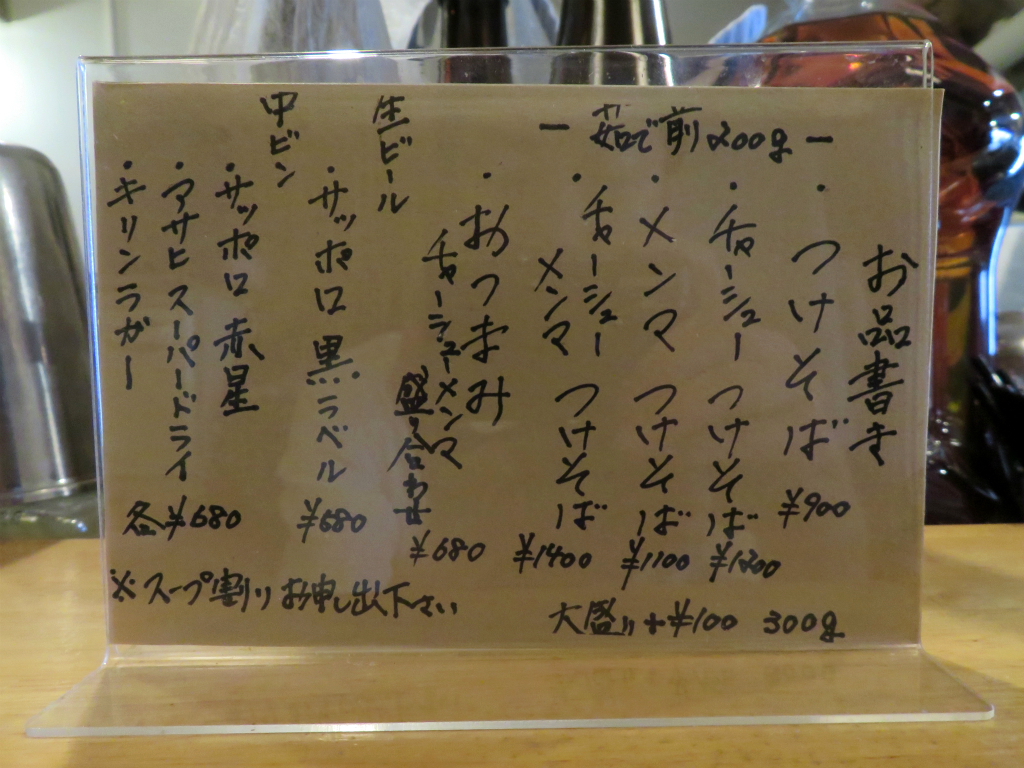 お品書き
一 茹で前200g 一
・つけそば ¥900
・チャーシューつけそば ¥1200
・メンマつけそば ¥1100
・チャーシュー
メンマつけそば ¥1400
・おつまみ
チャーシューメンマ
盛り合わせ ¥680
大盛り+¥100 300g
生ビール
・サッポロ黒ラベル ¥680
中ビン
・サッポロ赤星
・アサヒスーパードライ
・キリンラガー
各¥680
※スープ割りお申し出下さい